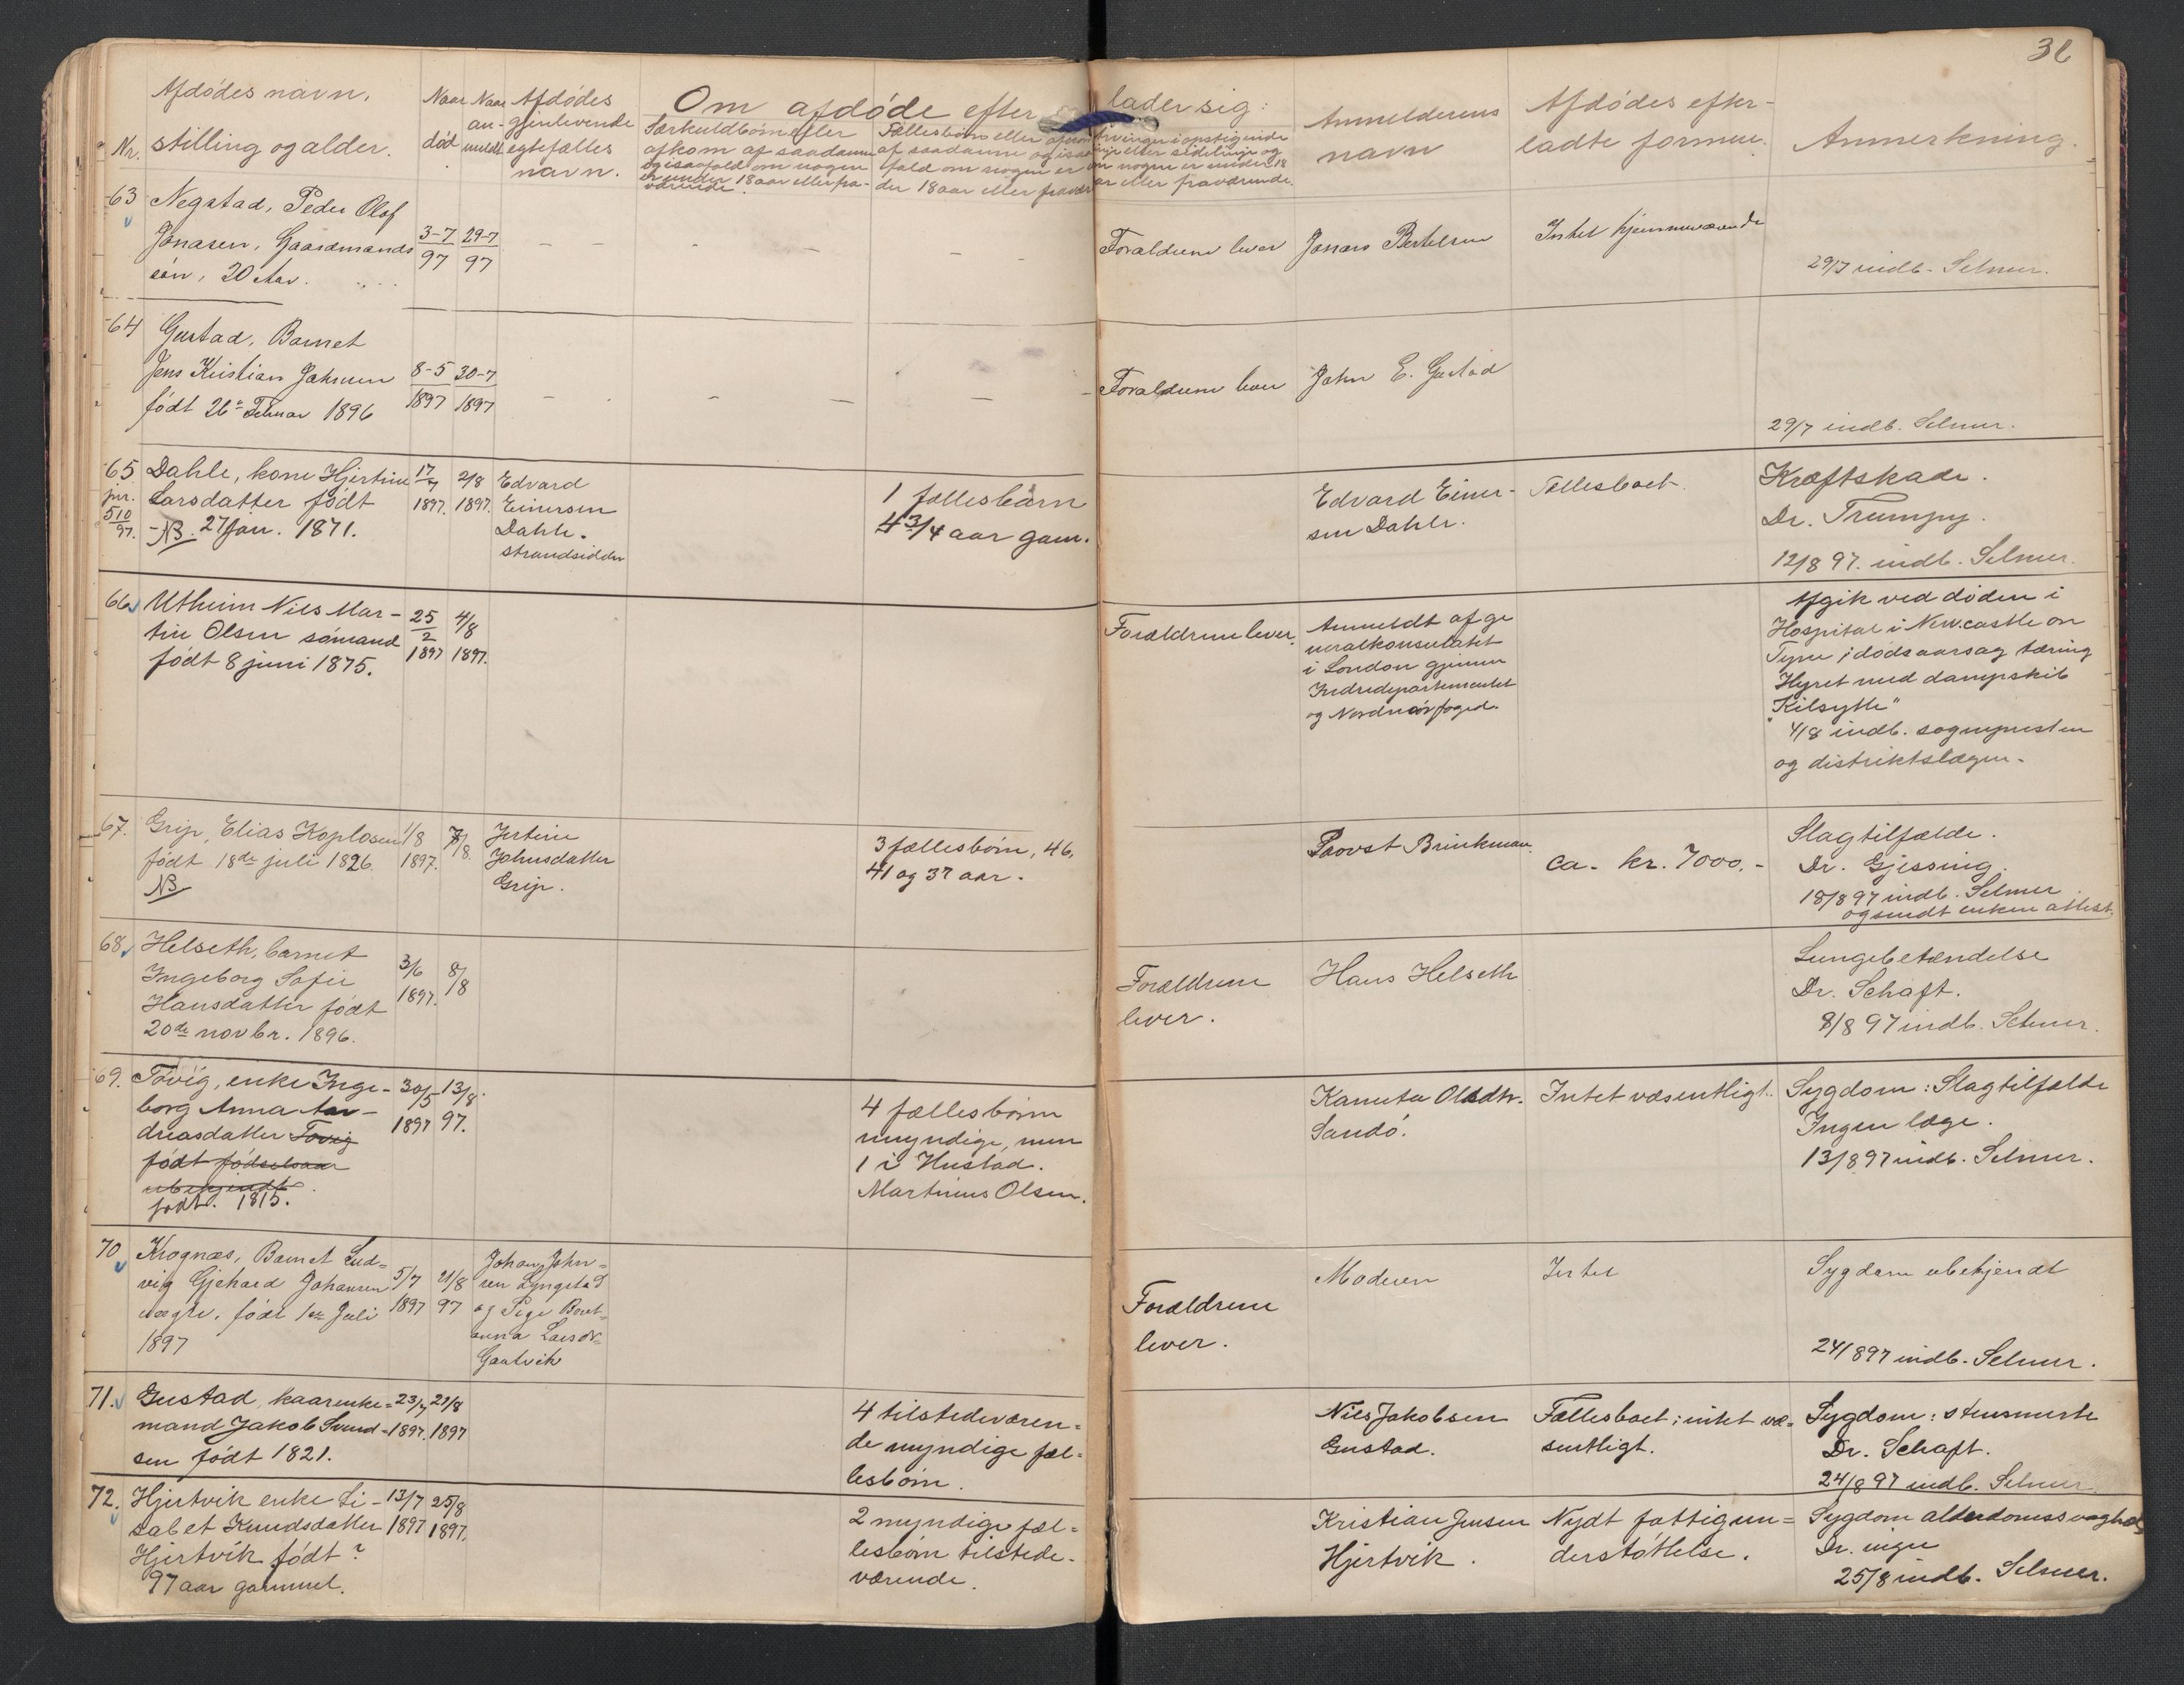 36
Afdødes navn,
stilling og alder.
Nr.
Naar
død
Naar
an-
meldt
Afdødes
gjenlevende
egtefælles
navn.
Om afdøde efterlader sig:
Særkuldbørn eller
afkom af saadanne
og isaafald om nogen
er under 18 aar eller fra-
værende.
Fællesbørn eller afkom
af saadanne og isaa-
fald om nogen er un-
der 18 aar eller fravær
Arvinger i opstigende
linje eller sidelinje og
om nogen er under 18
aar eller fraværende.
Anmelderens
navn
Afdødes efter-
ladte formue.
Anmerkning.
63
Negstad, Peder Olaf
Jonasen, Gaardmands
søn, 20 Aar.
3-7
97
29-7
97
Forældrene lever
Jonas Bertelsen
Intet hjemmeværende
29/7 indb. Selmer.
64
Gustad, Barnet
Jens Kristian Johnsen
født 26de Februar 1896
8-5
1897
30-7
1897
Forældrene lever
John E. Gustad
29/7 indb. Selmer.
65
jnr.
510
97.
Dahle, kone Hjertine
Larsdatter født
NB. 27 Jan. 1871.
17
7
1897.
2/8
1897.
Edvard
Einersen
Dahle.
strandsidder
1 fællesbarn
4 3/4 aar gam.
Edvard Einer-
sen Dahle.
Fællesboet.
Kræftskade.
Dr. Trumpy.
12/8 97. indb. Selmer.
66
Utheim Nils Mar-
tin Olsen sømand
født 8 juni 1875.
25
2
1897
4/8
1897.
Forældrene lever.
Anmeldt af ge
neralkonsulatet
i London gjennem
Indredepartementet
og Nordmør foged.
Afgik ved døden i
Hospital i Newcastle on
Tyne; dødsaarsag tæring
Hyret med dampskib
"Kilsyth"
4/8 indb. sognepresten
og distriktslægen.
67.
Grip, Elias Koplosen
født 18de juli 1826.
NB
1/8
1897.
7/8.
Jertine
Johnsdatter
Grip.
3 fællesbørn, 46,
41 og 37 aar.
Provst Brinkman.
ca. kr. 7000.-
Slagtilfælde.
Dr. Gjessing.
18/8 97 indb. Selmer
og sendt enken attest.
68.
Helseth, barnet
Ingeborg Sofie
Hansdatter født
20de novbr. 1896.
3/6
1897.
8/8
Forældrene
lever.
Hans Helseth
Lungebetændelse
Dr. Schaft.
8/8 97 indb. Selmer.
69.
Tøvig, enke Inge-
borg Anna An-
dreasdatter Tøvig
født fødselsaar
ubekjendt.
født. 1815.
30/5
1897
13/8.
97.
4 fællesbørn
myndige, men
1 i Hustad.
Martinus Olsen.
Kanuta Olsdtr.
Sandø.
Intet væsentligt.
Sygdom: Slagtilfælde
Ingen læge.
13/8 97 indb. Selmer.
70
Krognæs, Barnet Lud=
vig Gjehard Johansen
uægte, født 1ste Juli
1897
5/7
1897
21/8
97
Johan John=
sen Lyngstad
og Pige Beret=
anna Larsdr=
Gautvik
Forældrene
lever.
Moderen
Intet
Sygdom ubekjendt
24/8 97 indb. Selmer.
71.
Gustad, kaarenke=
mand Jakob Svend=
sen født 1821.
23/7
1897.
21/8
1897
4 tilstedeværen=
de myndige fæl=
lesbørn.
Nils Jakobsen
Gustad.
Fællesboet; intet væ=
sentligt.
Sygdom: stensmerte
Dr. Schaft.
24/8 97 indb. Selmer.
72.
Hjertvik enke Li-
sabet Knudsdatter
Hjertvik født?
97 aar gammel.
13/7
1897
25/8
1897.
2 myndige fæl=
lesbørn tilstede-
værende.
Kristian Jensen
Hjertvik.
Nydt fattigun=
derstøttelse.
Sygdom alderdomssvaghed
Dr. ingen
25/8 indb. Selmer.